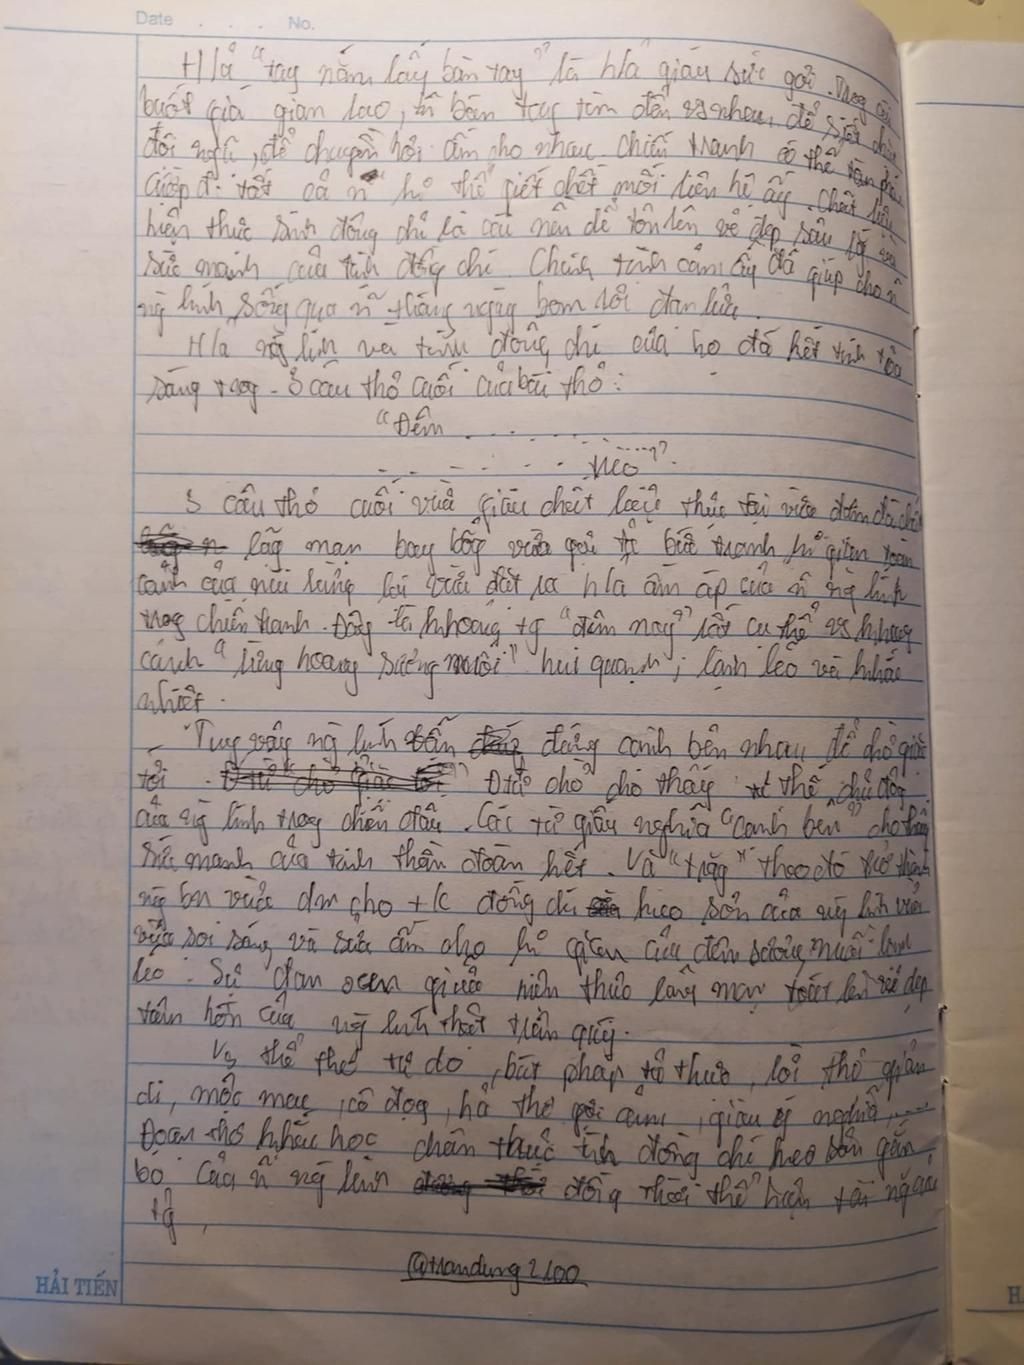 Date . . . No.
H/ả "tay nắm lấy bàn tay" là h/ả giàu sức gợi. Trog cái
buốt giá gian lao, bàn tay tìm đến vs nhau, để siết chặt
đội ngũ, để chuyền hơi ấm cho nhau. Chiến tranh có thể tàn phá
cướp đi tất cả n~ k thể giết chết mối liên hệ ấy. Chất liệu
hiện thực sinh động chỉ là cái nền để tôn lên vẻ đẹp sâu và
sức mạnh của tình đồng chí. Chính tình cảm ấy đã giúp cho n~
ng lính sống qua n~ tháng ngày bom rơi đạn lửa.
H/ả ng lính và tình đồng chí của họ đã kết tinh tỏa
sáng trog 3 câu thơ cuối của bài thơ:
"Đêm . . . . . . .
. . . . . . treo".
3 câu thơ cuối vừa giàu chất thực tại vừa đậm đà chất
lãg mạn bay bổg vừa gợi bức tranh k gian toàn
cảnh của núi rừng lại vừa đặt ra h/ả ấm áp của n~ ng lính
trog chiến tranh. Đây là khoảng tg "đêm nay" rất cụ thể vs khung
cảnh "rừng hoang sương muối" hiu quạnh, lạnh lẽo và khắc
nhiệt.
Tuy vậy ng lính vẫn đứng cạnh bên nhau để chờ giặc
tới. Đtừ chờ cho thấy tư thế chủ độg
của ng lính trog chiến đấu. Các từ giàu nghĩa "cạnh bên" cho thấy
sức mạnh của tinh thần đoàn kết. Và "trăg" theo đó trở thành
ng bn vừa cho t/c đồng chí keo sơn của ng lính vừa
vừa soi sáng và sưởi ấm cho k gian của đêm sương muối lạnh
lẽo. Sự đan xen giữa hiện thực lãng mạn toát lên vẻ đẹp
tâm hồn của ng lính thật trân quý.
Vs thể thơ tự do, bút pháp tả thực, lời thơ giản
dị, mộc mạc, cô đọg, h/ả thơ gợi cảm, giàu ý nghĩa,....
Đoạn thơ khắc học chân thực tình đồng chí keo sơn gắn
bó của n~ ng lính đồng thời thể hiện tài ng của
tg.
@trandung2100
HẢI TIẾN
H